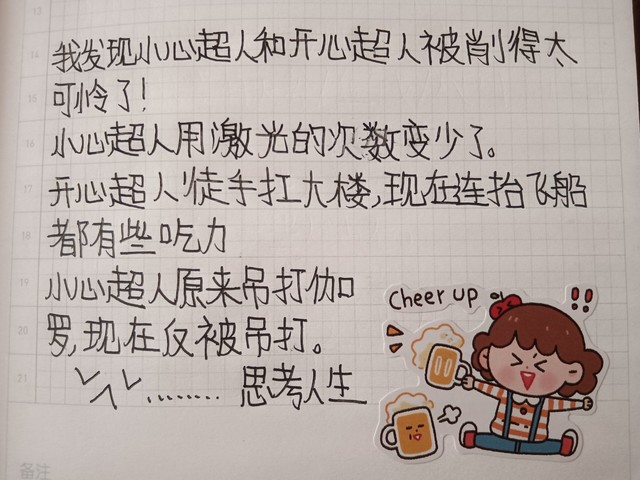 13
14
我发现小心超人和开心超人被削得太
15
可怜了!
16
小心超人用激光的次数变少了。
17
开心超人徒手扛大楼,现在连抬飞船
18
都有些吃力
19
小心超人原来吊打伽
20
罗,现在反被吊打。
21
........ 思考人生
Cheer up
!!
备注